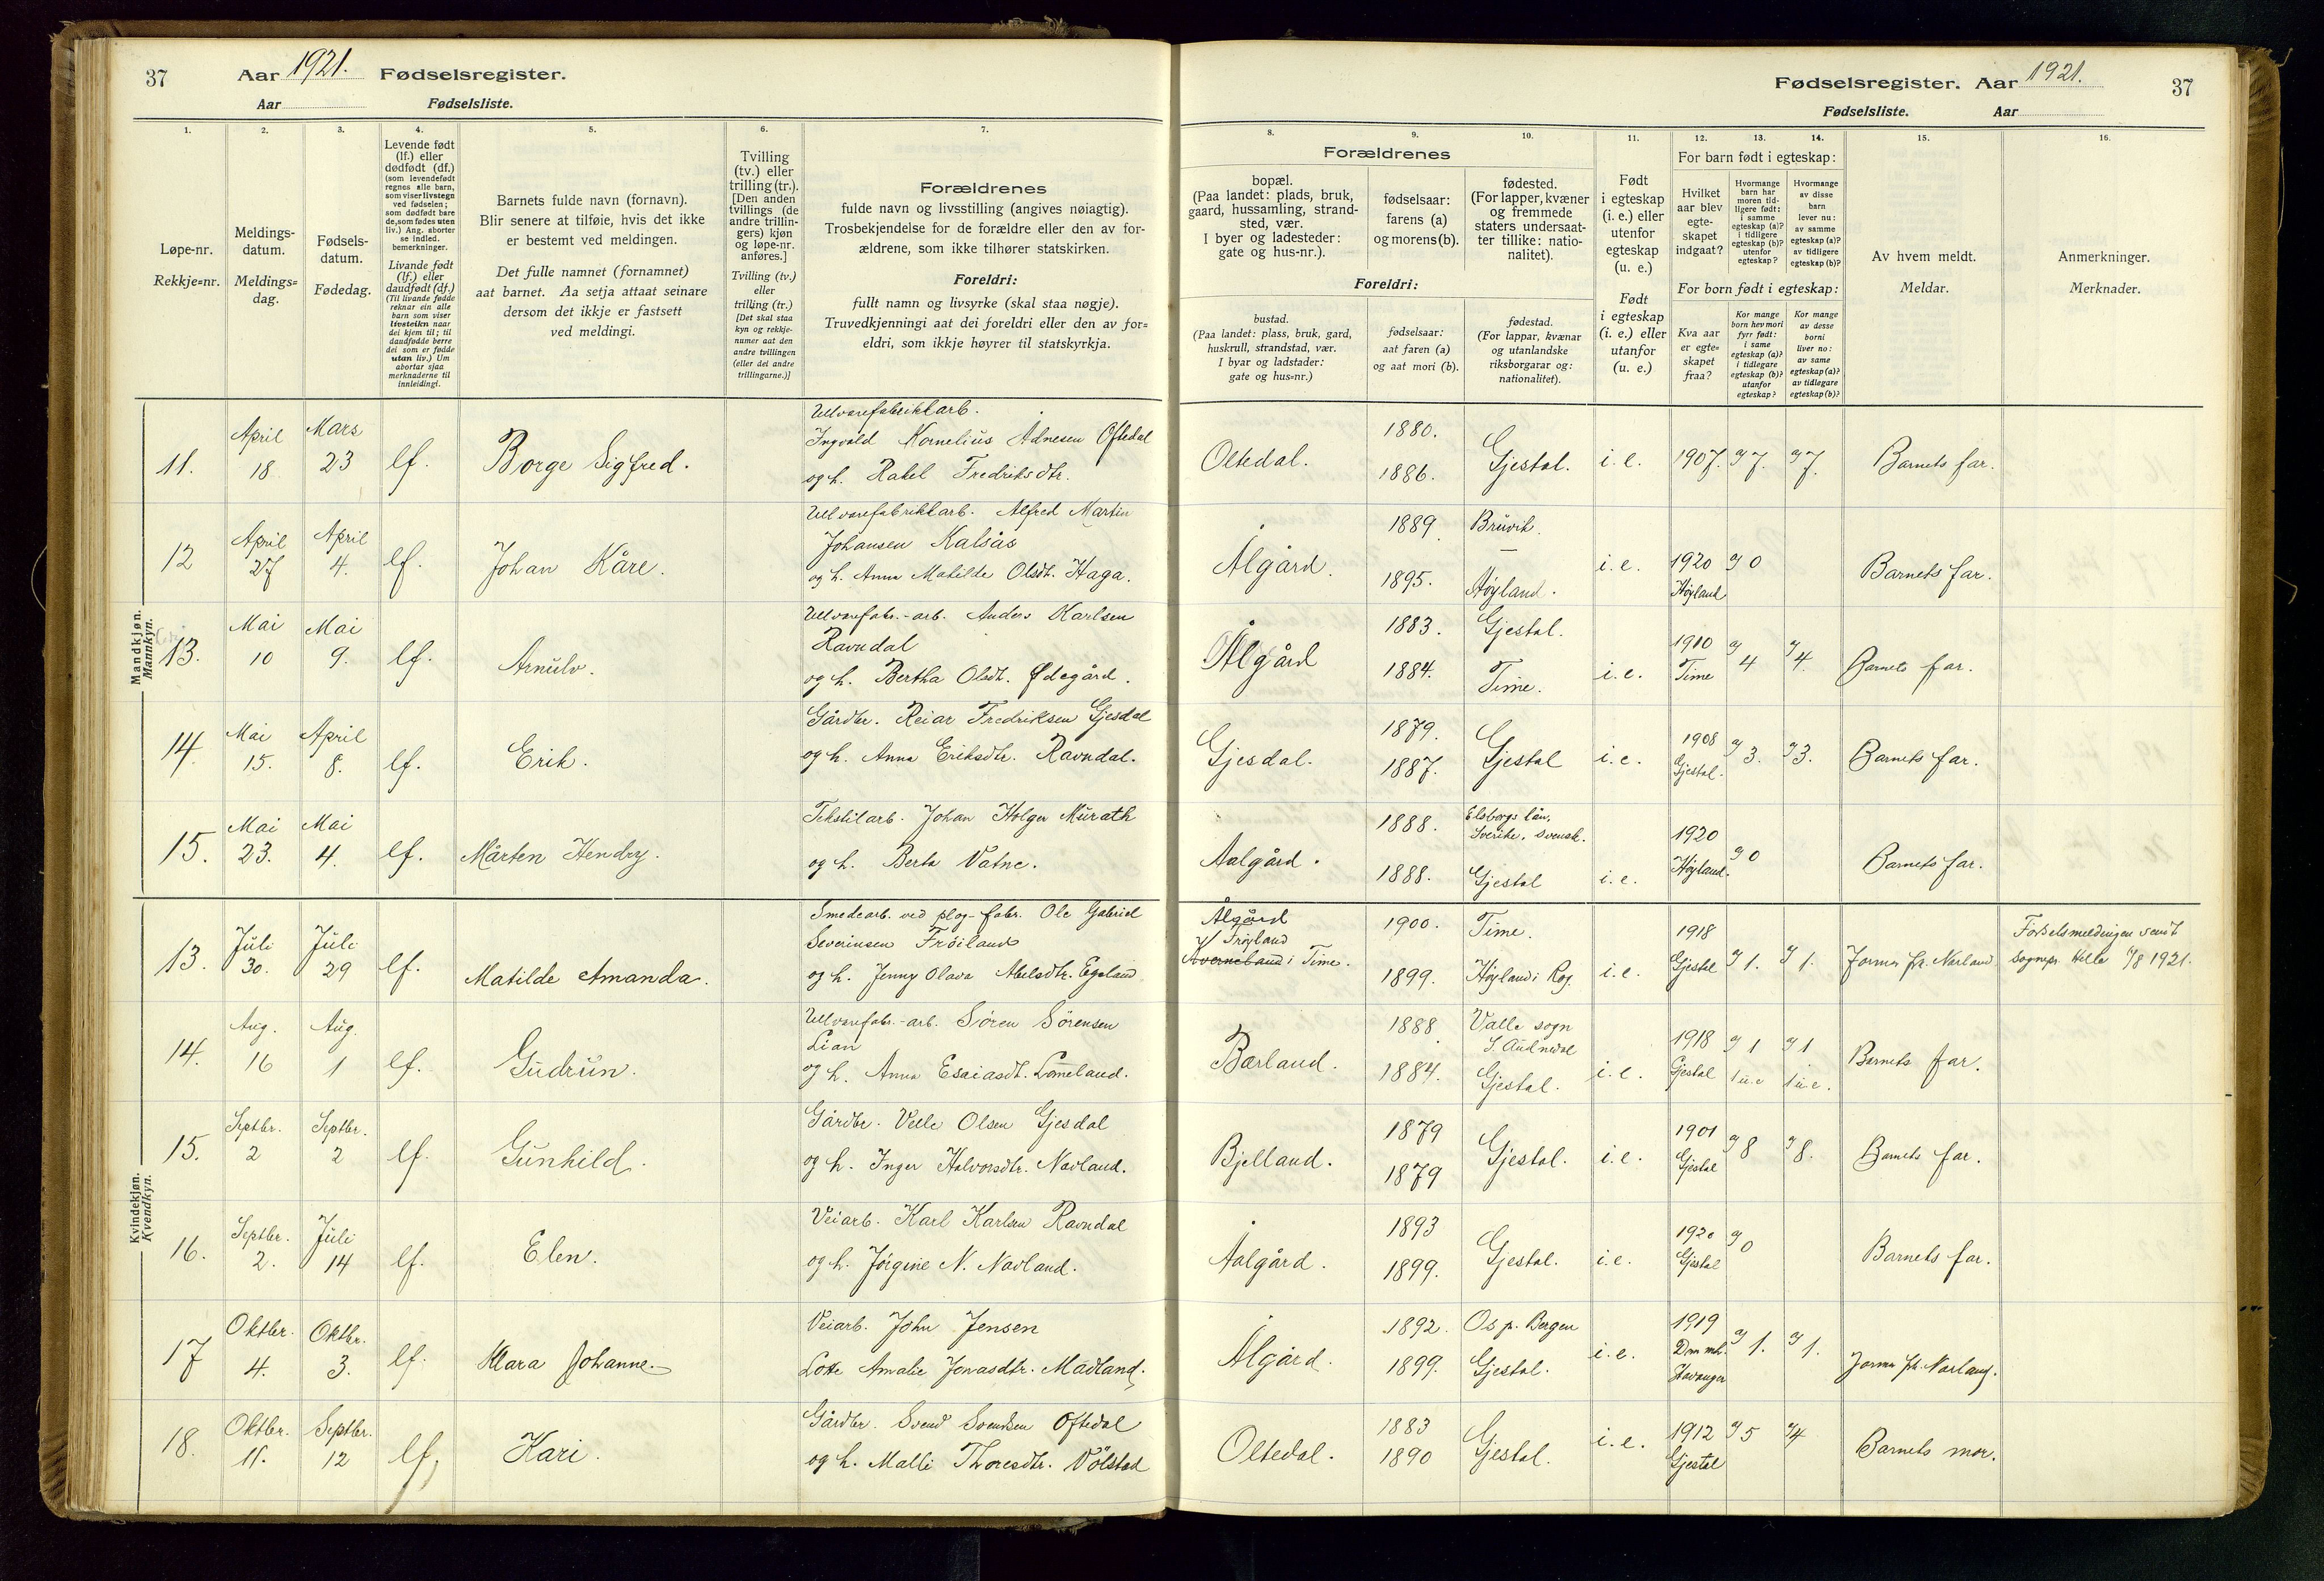 37
Aar 1921. Fødselsregister.
Aar Fødselsliste.
Fødselsregister. Aar 1921.
37
Fødselsliste. Aar
1.
2.
3.
4.
5.
6.
7.
8.
9.
10.
11.
12.
13.
14.
15.
16.
Løpe-nr.
Rekkje=nr.
Meldings-
datum.
Meldings=
dag.
Fødsels-
datum.
Fødedag.
Levende født
(lf.) eller
dødfødt (df.)
(som levendefødt
regnes alle barn,
som viser livstegn
ved fødselen;
som dødfødt bare
de, som fødes uten
liv.) Ang. aborter
se indled.
bemerkninger.
Livande født
(lf.) eller
daudfødt (df.)
(Til livande fødde
reknar ein alle
barn som viser
livsteikn naar
dei kjem til; til
daudfødde berre
dei som er fødde
utan liv.) Um
abortar sjaa
merknaderne til
innleidingi.
Barnets fulde navn (fornavn).
Blir senere at tilføie, hvis det ikke
er bestemt ved meldingen.
Det fulle namnet (fornamnet)
aat barnet. Aa setja attaat seinare
dersom det ikkje er fastsett
ved meldingi.
Tvilling
(tv.) eller
trilling (tr.).
[Den anden
tvillings (de
andre trillin-
gers) kjøn
og løpe-nr.
anføres.]
Tvilling (tv.)
eller
trilling (tr.)
[Det skal staa
kyn og rekkje-
numer aat den
andre tvillingen
(eller dei andre
trillingarne.)]
Forældrenes
fulde navn og livsstilling (angives nøiagtig).
Trosbekjendelse for de forældre eller den av for-
ældrene, som ikke tilhører statskirken.
Foreldri:
fullt namn og livsyrke (skal staa nøgje).
Truvedkjenningi aat dei foreldri eller den av for=
eldri, som ikkje høyrer til statskyrkja.
Forældrenes
bopæl.
(Paa landet: plads, bruk,
gaard, hussamling, strand-
sted, vær.
I byer og ladesteder:
gate og hus-nr.).
fødselsaar:
farens (a)
og morens (b).
fødested.
(For lapper, kvæner
og fremmede
staters undersaat-
ter tillike: natio-
nalitet).
Foreldri:
bustad.
(Paa landet: plass, bruk, gard,
huskrull, strandstad, vær.
I byar og ladstader:
gate og hus=nr.)
fødselsaar:
aat faren (a)
og aat mori (b).
fødestad.
(For lappar, kvænar
og utanlandske
riksborgarar og:
nationalitet).
Født
i egteskap
(i. e.) eller
utenfor
egteskap
(u. e.)
Født
i egteskap
(i. e.) eller
utanfor
(u. e.)
For barn født i egteskap:
Hvilket
aar blev
egte-
skapet
indgaat?
Hvormange
barn har
moren tid-
ligere født:
i samme
egteskap (a)?
i tidligere
egteskap (b)?
utenfor
egteskap?
Hvormange
av disse
barn
lever nu:
av samme
egteskap (a)?
av tidligere
egteskap (b)?
For born født i egteskap:
Kva aar
er egte=
skapet
fraa?
Kor mange
born hev mori
fyrr født:
i same
egteskap (a)?
i tidlegare
egteskap (b)?
utanfor
egteskap?
Kor mange
av desse
borni
liver no:
av same
egteskap (a)?
av tidlegare
egteskap (b)?
Av hvem meldt.
Meldar.
Anmerkninger.
Merknader.
Mandkjøn.
Mannkyn.
11. April 18 Mars 23 lf. Borge Sigfred.
Ullvarefabrikkarb.
Ingvald Kornelius Adnesen Oftedal
og h. Rakel Fredriksdtr.
Oltedal. 1880. 1886. Gjestal. i. e. 1907. 7. 7. Barnets far.
12 April 27 April 4. lf. Johan Kåre.
Ullvarefabrikkarb. Alfred Martin
Johansen Kalsås
og h. Anna Matilde Olsdt. Haga.
Ålgård. 1889 1895. Bruvik. Høyland. i. e. 1920 Høyland 0 Barnets far.
13. Mai 10 Mai 9. lf. Arnulv.
Ullvarefabr.-arb. Anders Karlsen
Ravndal
og h. Bertha Olsdt. Ødegård.
Ålgård 1883. 1884. Gjestal. Time. i. e. 1910 Time 4 4. Barnets far.
14. Mai 15. April 8. lf. Erik.
Gårdbr. Reiar Fredriksen Gjesdal
og h. Anna Eriksdtr. Ravndal.
Gjesdal. 1879. 1887. Gjestal i. e. 1908 Gjestal. 3. 3. Barnets far.
15. Mai 23. Mai 4. lf. Mårten Hendry.
Tekstilarb. Johan Holger Murath
og h. Berta Vatne.
Aalgård. 1888. 1888. Elsborgs län, Sverike. svensk. Gjestal i. e. 1920 Høyland. 0 Barnets far.
Kvindekjøn.
Kvendkyn.
13. Juli 30. Juli 29 lf. Matilde Amanda.
Smedearb. ved plog-fabr. Ole Gabriel
Severinsen Fröiland
og h. Jenny Olava Abelsdtr. Egeland
Ålgård
Frøyland
Kverneland i Time. 1900. 1899. Time. Høyland i Rog. i. e. 1918 Gjestal 1. 1. Jorm. fr. Navland
Fødselsmeldingen sendt
sognepr. Hille 1/8 1921.
14. Aug. 16 Aug. 1 lf. Gudrun.
Ullvarefabr.-arb. Sören Sörensen
Lian
og h. Anna Esaiasdt. Lomeland.
Bærland. 1888 1884. Valle sogn S. Audnedal Gjestal. i. e. 1918 Gjestal 1 1 u.e 1 1 u.e. Barnets far.
15. Septbr. 2 Septbr. 2 lf. Gunhild.
Gårdbr. Velle Olsen Gjesdal
og h. Inger Halvorsdtr. Navland.
Bjelland. 1879 1879 Gjestal. i. e. 1901 Gjestal 8 8. Barnets far.
16. Septbr. 2. Juli 14 lf. Elen.
Veiarb. Karl Karlsen Ravndal
og h. Jørgine N. Navland.
Aalgård. 1893 1899. Gjestal. i. e. 1920 Gjestal 0 Barnets far.
17 Oktbr. 4. Oktbr. 3. lf. Klara Johanne.
Veiarb. John Jensen
Lotte Amalie Jonasdtr. Madland.
Ålgård. 1892. 1899. Os p. Bergen Gjestal. i. e. 1919 Stavanger 1. 1. Jorm. fr. Navland.
18. Oktbr. 11. Septbr. 12 lf. Kari.
Gårdbr. Svend Svendsen Oftedal
og h. Malli Thoresdtr. Vølstad
Oltedal. 1883 1890 Gjestal. i. e. 1912 Gjestal 5 4 Barnets mor.